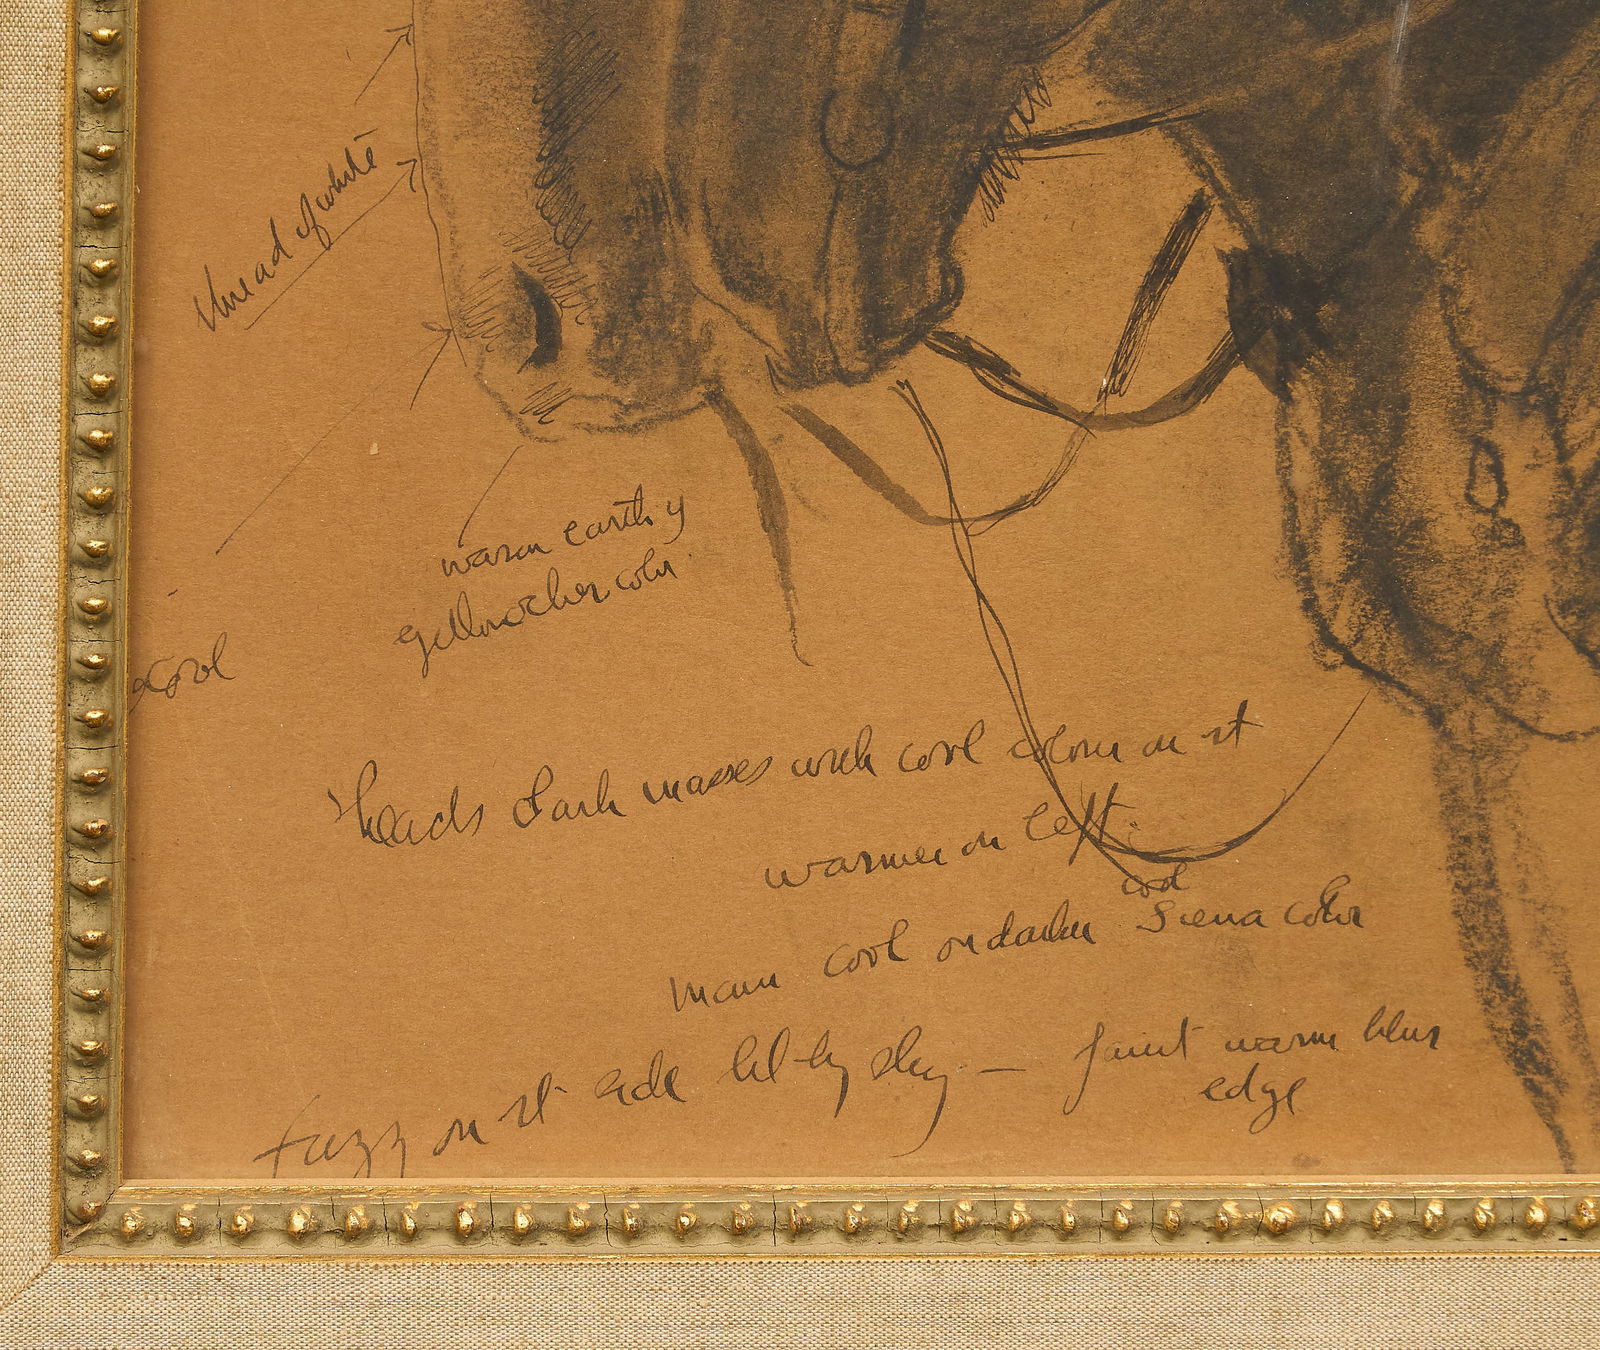 thread of white
warm earthy
yellow ocher color
cool
Heads dark masses with cool colour on rt
warmer on left.
cool
main cool on darker Siena color
fuzz on rt side lit by sky — faint warm blue
edge